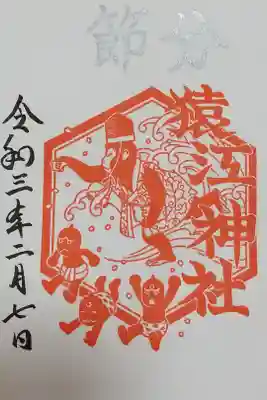 節分
猿江神社
令和三年二月七日